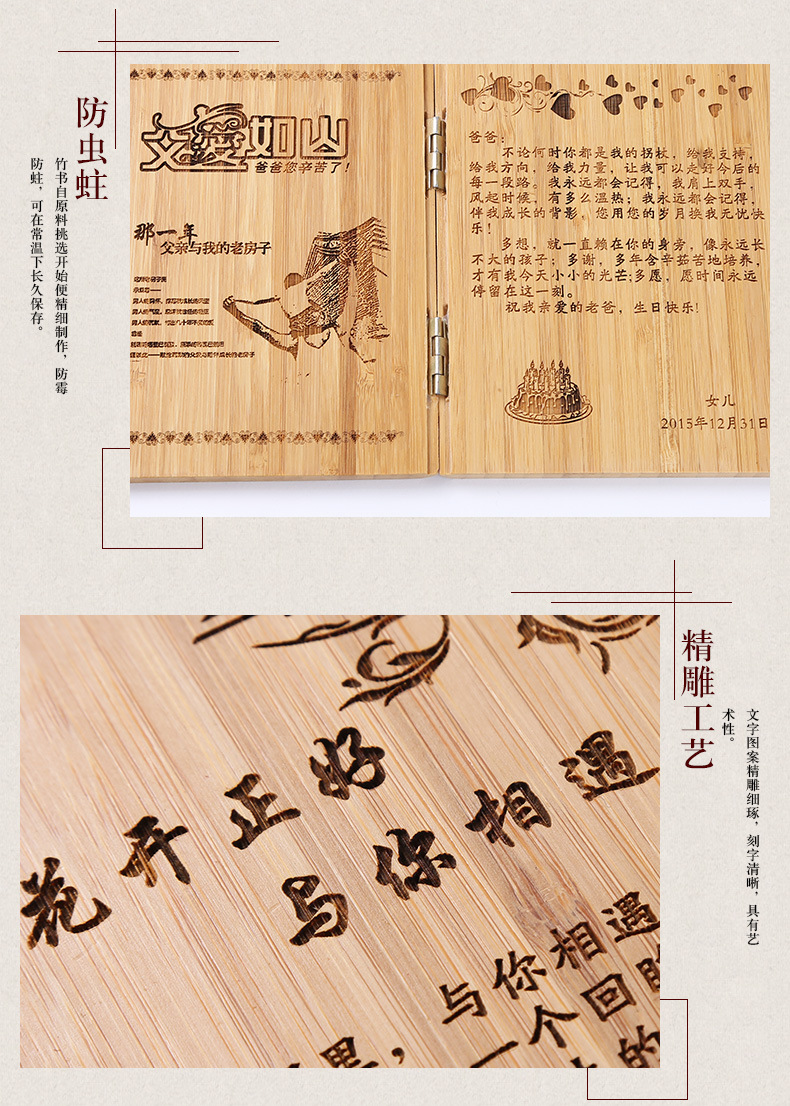 防虫蛀
竹书自原料挑选开始便精细制作，防霉
防蛀，可在常温下长久保存。
父愛如山
爸爸您辛苦了!
那一年
父亲与我的老房子
爸爸：
不论何时你都是我的拐杖，给我支持，
给我方向，给我力量，让我可以走好今后的
每一段路。我永远都会记得，我肩上双手，
风起时候，有多么温热；我永远都会记得，
伴我成长的背影，您用您的岁月换我无忧快
乐!
多想，就一直赖在你的身旁，像永远长
不大的孩子；多谢，多年含辛茹苦地培养，
才有我今天小小的光芒;多愿，愿时间永远
停留在这一刻。
祝我亲爱的老爸，生日快乐!
女儿
2015年12月31日
精雕工艺
文字图案精雕细琢，刻字清晰，具有艺
术性。
花开正好
与你相遇
与你相遇
一个回眸
里，
的